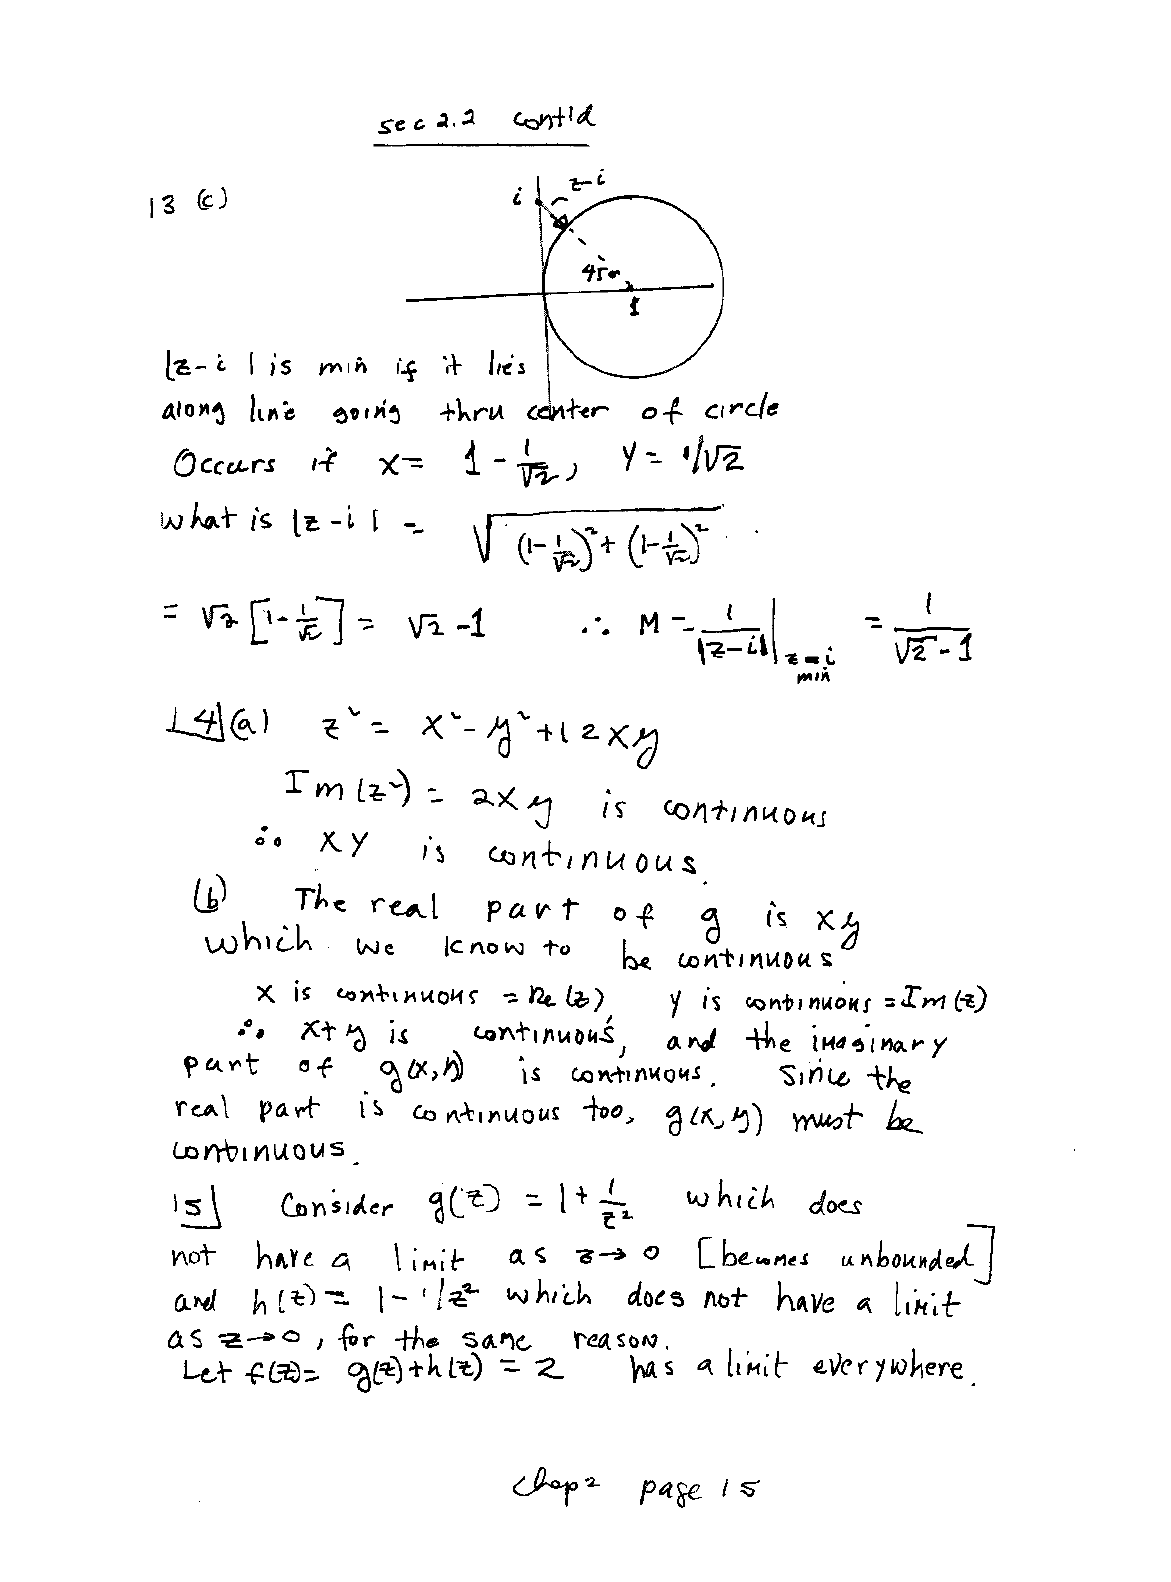 sec 2.2 cont'd
13 (c)
i z-i
45°
1
|z-i| is min if it lies
along line going thru center of circle
Occurs if x = 1 - 1/√2, y = 1/√2
what is |z-i| = √((1-1/√2)² + (1-1/√2)²)
= √2 [1-1/√2] = √2 -1 ∴ M = 1/|z-i| | z-i min = 1/(√2-1)
14 (a) z² = x² - y² + i2xy
Im(z²) = 2xy is continuous
∴ xy is continuous.
(b) The real part of g is xy
which we know to be continuous
x is continuous = Re(z), y is continuous = Im(z)
∴ x+y is continuous, and the imaginary
part of g(x,y) is continuous. Since the
real part is continuous too, g(x,y) must be
continuous.
15 Consider g(z) = 1 + 1/z² which does
not have a limit as z→0 [becomes unbounded]
and h(z) = 1 - 1/z² which does not have a limit
as z→0, for the same reason.
Let f(z) = g(z)+h(z) = 2 has a limit everywhere.
Chap 2 page 15